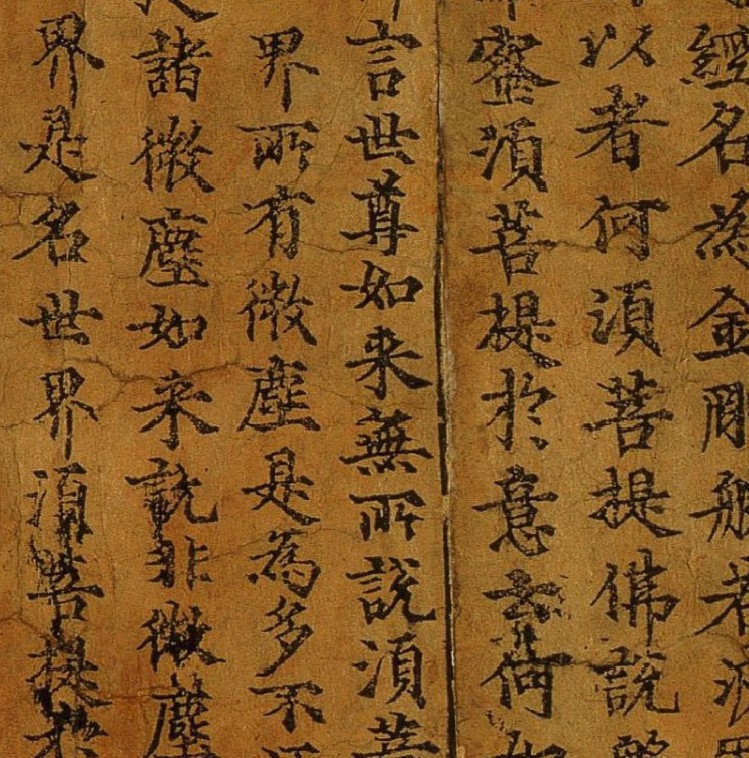 經名為金剛般若波
以者何須菩提佛說般
蜜須菩提於意云何如
言世尊如来無所說須菩
界所有微塵是為多不
諸微塵如来說非微塵
界是名世界須菩提於